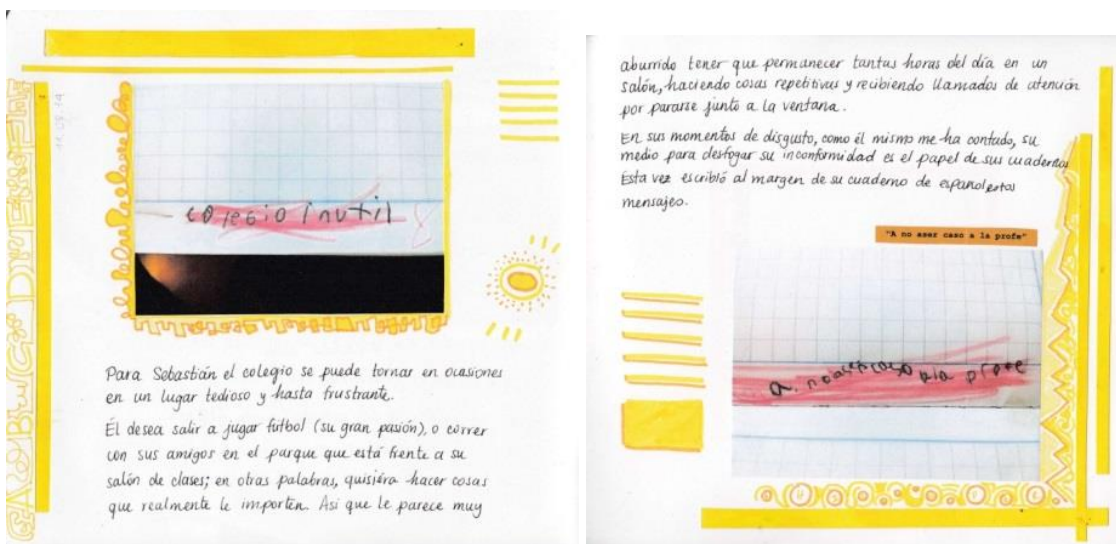 11.09.14
colegio inutil
Para Sebastián el colegio se puede tornar en ocasiones
en un lugar tedioso y hasta frustrante.
Él desea salir a jugar futbol (su gran pasión), o correr
con sus amigos en el parque que está frente a su
salón de clases; en otras palabras, quisiéra hacer cosas
que realmente le importen. Asi que le parece muy
aburrido tener que permanecer tantas horas del día en un
salón, haciendo cosas repetitivas y recibiendo llamados de atención
por pararse junto a la ventana.
En sus momentos de disgusto, como él mismo me ha contado, su
medio para desfogar su inconformidad es el papel de sus cuadernos
Esta vez escribió al margen de su cuaderno de español estos
mensajes.
"A no aser caso a la profe"
a. no aser caso ala profe